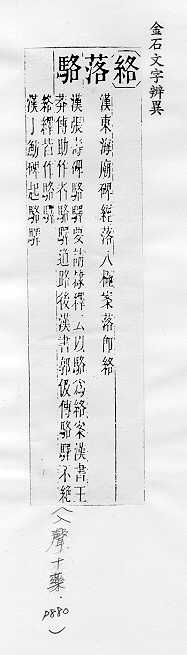 金石文字辨異
絡落駱
漢東海廟碑經落八極案落即絡
漢張壽碑駱驛要請隸釋云以駱爲絡案漢書王
莽傳助作者駱驛道路後漢書郭伋傳駱驛不絶
絡繹皆作駱驛
漢丁魴碑起駱驛
（入聲十藥．p880）